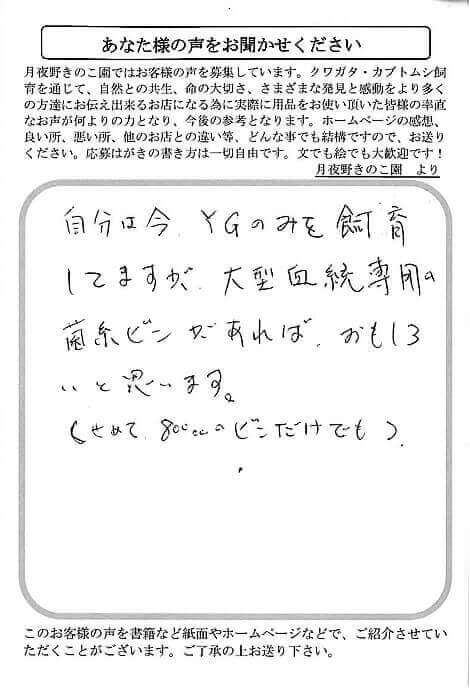 あなた様の声をお聞かせください
月夜野きのこ園ではお客様の声を募集しています。クワガタ・カブトムシ飼
育を通じて、自然との共生、命の大切さ、さまざまな発見と感動をより多く
の方達にお伝え出来るお店になる為に実際に用品をお使い頂いた皆様の率直
なお声が何よりの力となり、今後の参考となります。ホームページの感想、
良い所、悪い所、他のお店との違い等、どんな事でも結構ですので、お送り
ください。応募はがきの書き方は一切自由です。文でも絵でも大歓迎です!
月夜野きのこ園 より
自分は今、YGのみを飼育
してますが、大型血統専用の
菌糸ビンがあれば、おもしろ
いと思います。
(せめて、800ccのビンだけでも)。
このお客様の声を書籍など紙面やホームページなどで、ご紹介させてい
ただくことがございます。ご了承の上お送り下さい。